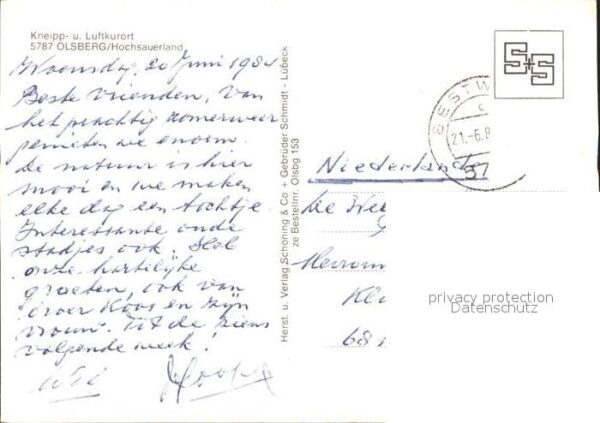 Kneipp- u. Luftkurort
5787 OLSBERG/Hochsauerland
Woensdag, 20 Juni 1984
Beste vrienden, Van
het prachtig zomerweer
genieten we enorm.
De natuur is hier
mooi en we maken
elke dag een tochtje.
Interessante oude
stadjes ook.
onze hartelijke
groeten, ook van
broer Koos en zijn
vrouw. Tot de
volgende week!
Herst. u. Verlag Schöning & Co + Gebrüder Schmidt - Lübeck
ze Bestellnr. Olsbg 153
S+S
BESTW
21.-6.8
57
Niederlande
Kl
68
privacy protection
Datenschutz